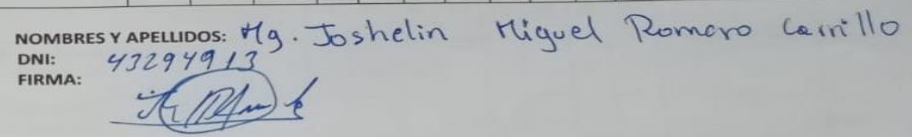 NOMBRES Y APELLIDOS: Mg. Joshelin Miguel Romero Carrillo
DNI: 43294913
FIRMA: